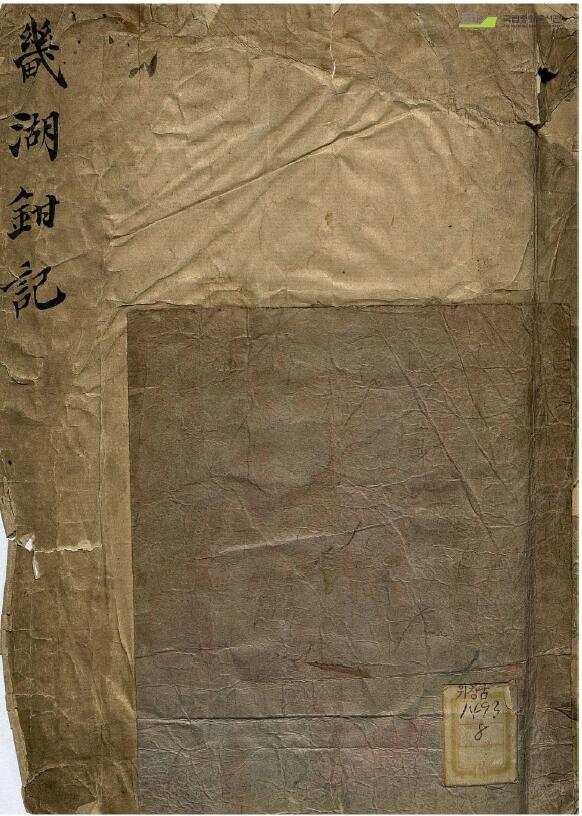 畿湖鉗記
국립중앙도서관
위창古
1493
8